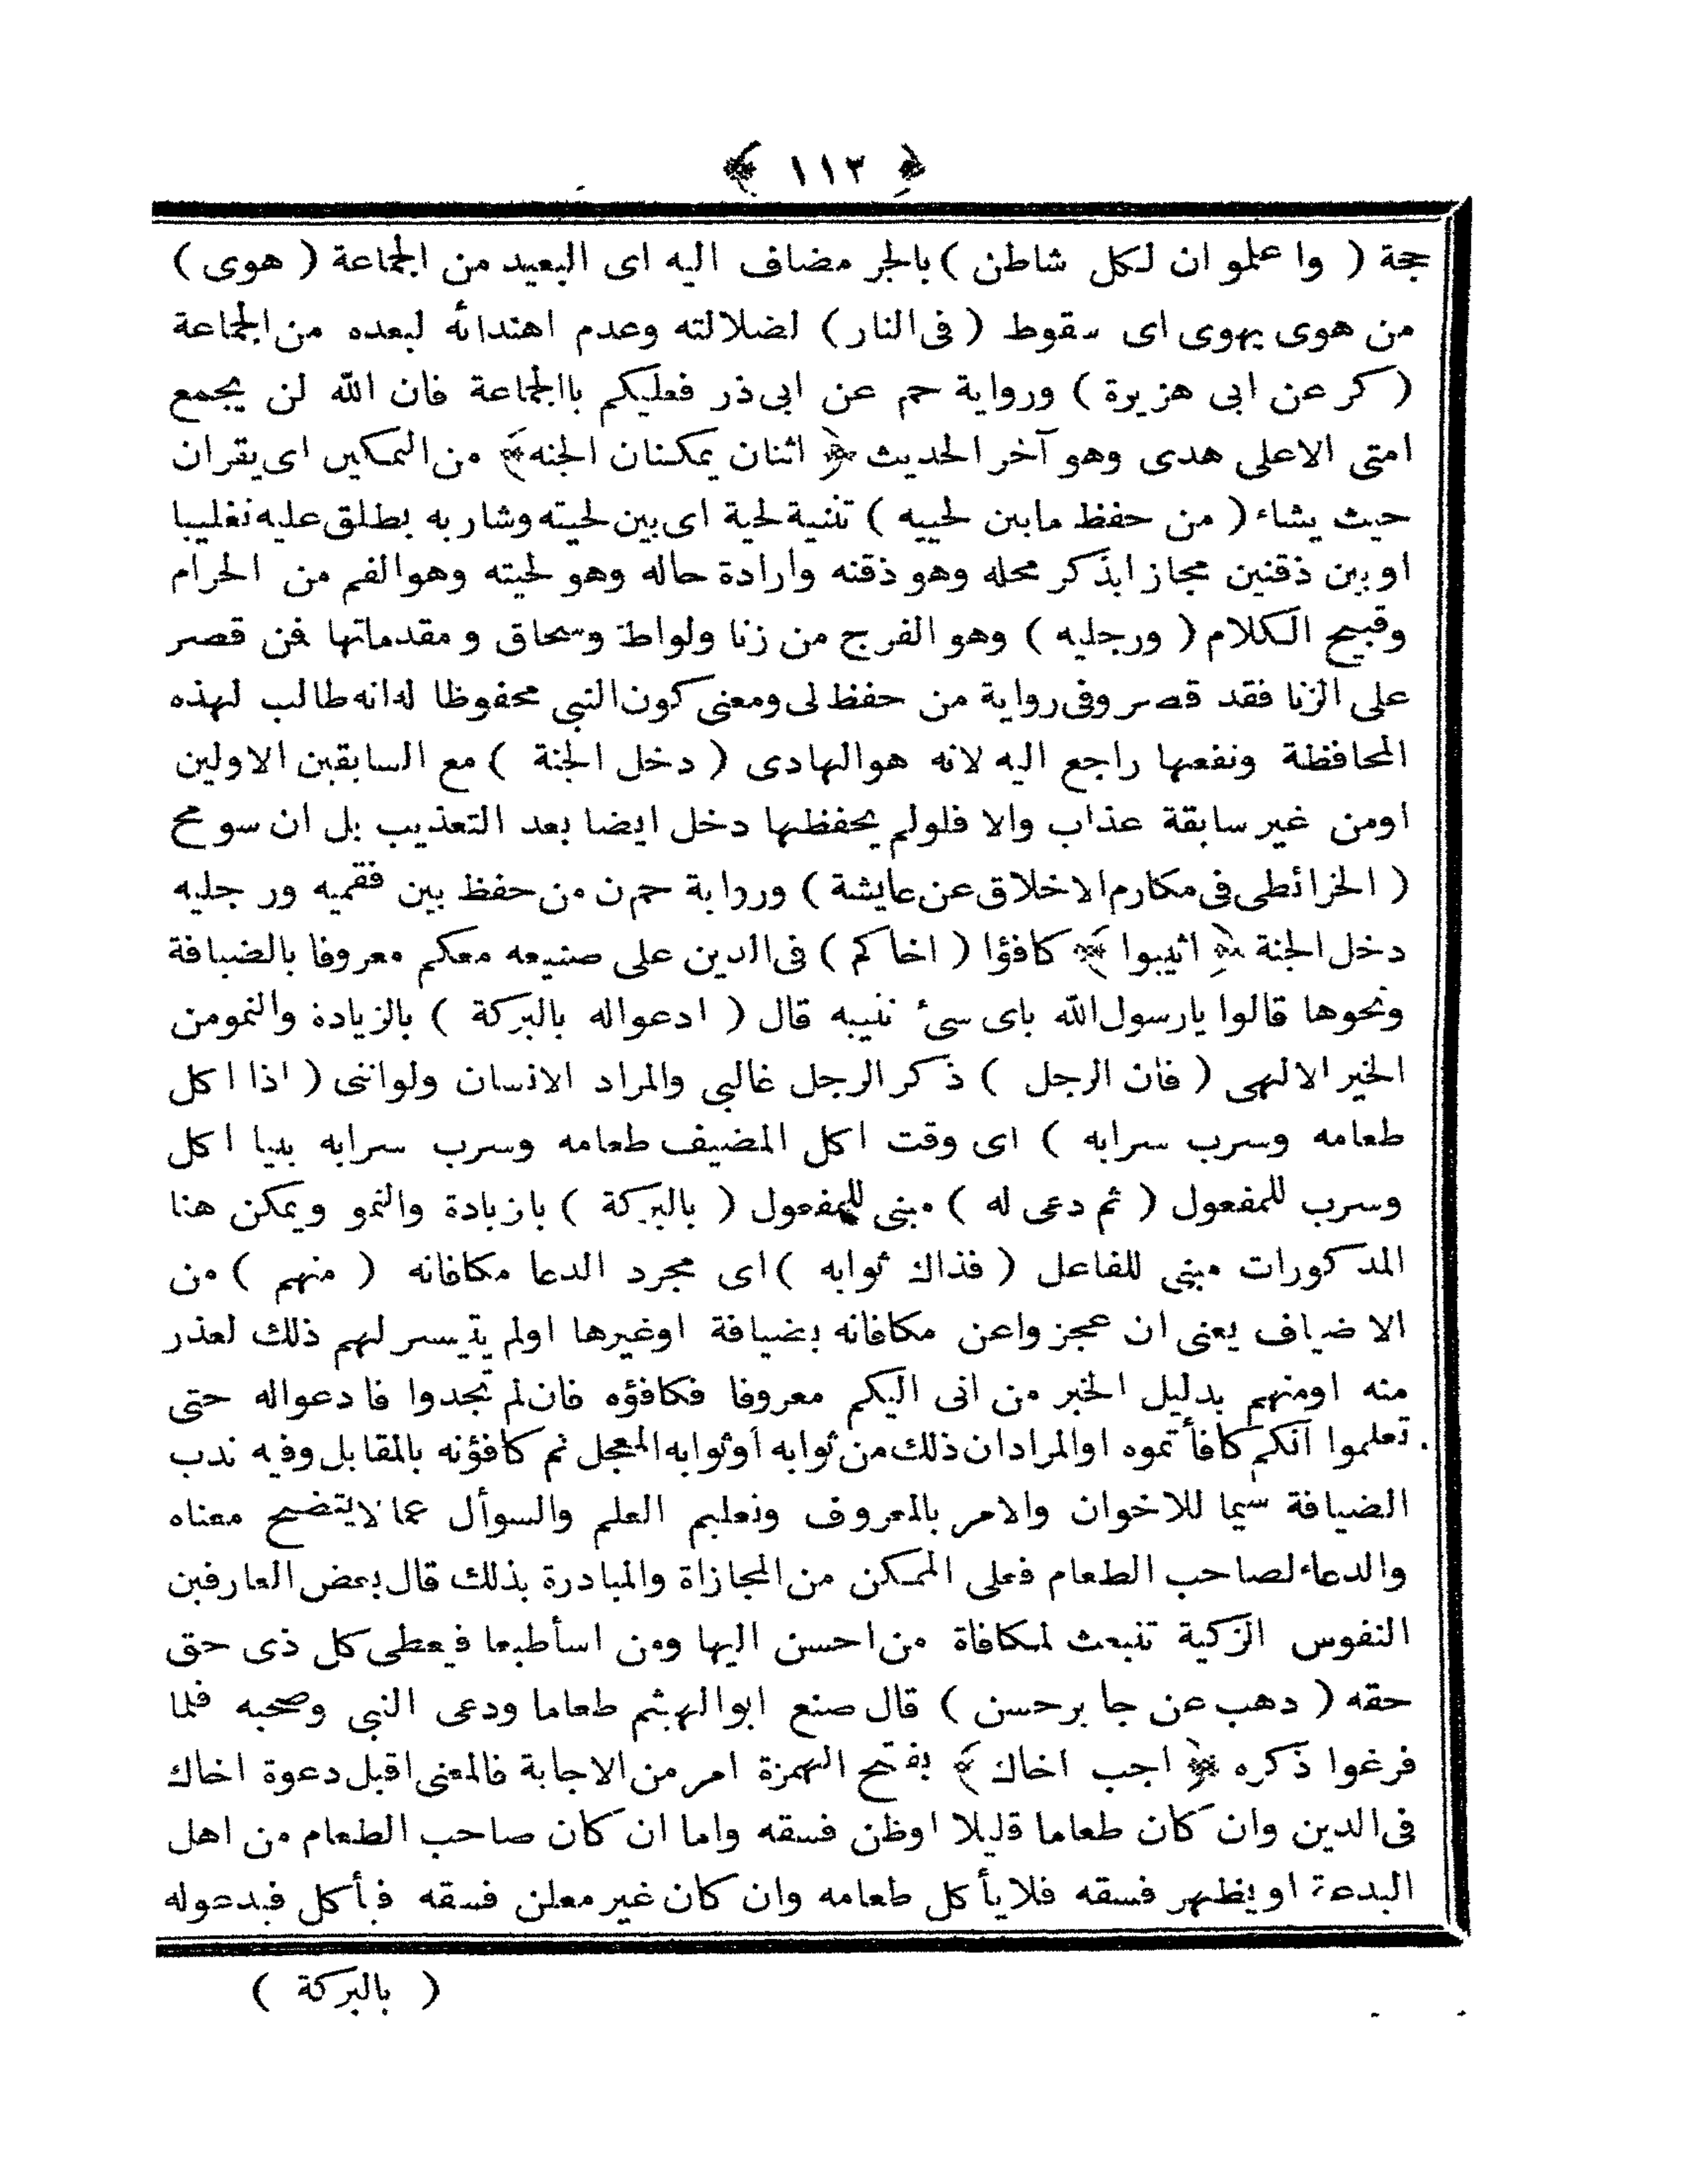 ﴿ ١١٣ ﴾
حجة ( واعلمو ان لكل شاطن ) بالجر مضاف اليه اى البعيد من الجماعة ( هوى )
من هوى يهوى اى سقوط ( فى النار ) لضلالته وعدم اهتدائه لبعده من الجماعة
( كر عن ابى هريرة ) ورواية حم عن ابى ذر فعليكم باالجماعة فان الله لن يجمع
امتى الاعلى هدى وهو آخر الحديث ﴿ اثنان يمكنان الجنه ﴾ من التمكين اى يقران
حيث يشاء ( من حفظ مابين لحييه ) تثنية لحية اى بين لحيته وشاربه يطلق عليه تغليبا
اوبين ذقنين مجازا بذكر محله وهو ذقنه وارادة حاله وهو لحيته وهو الفم من الحرام
وقبيح الكلام ( ورجليه ) وهو الفرج من زنا ولواطة وسحاق ومقدماتها فمن قصر
على الزنا فقد قصر وفى رواية من حفظ لى ومعنى كون النبى محفوظا له انه طالب لهذه
المحافظة ونفعها راجع اليه لانه هو الهادى ( دخل الجنة ) مع السابقين الاولين
اومن غير سابقة عذاب والا فلولم يحفظها دخل ايضا بعد التعذيب بل ان سومح
( الخرائطى فى مكارم الاخلاق عن عايشة ) ورواية حم ن من حفظ بين فقميه ورجليه
دخل الجنة ﴿ اثيبوا ﴾ كافؤا ( اخاكم ) فى الدين على صنيعه معكم معروفا بالضيافة
ونحوها قالوا يارسول الله باى سىء نثيبه قال ( ادعواله بالبركة ) بالزيادة والنمو من
الخير الالهى ( فان الرجل ) ذكر الرجل غالبى والمراد الانسان ولوانثى ( اذا اكل
طعامه وسرب سرابه ) اى وقت اكل المضيف طعامه وسرب سرابه ببنا اكل
وسرب للمفعول ( ثم دعى له ) مبنى للمفعول ( بالبركة ) بازيادة والنمو ويمكن هنا
المدكورات مبنى للفاعل ( فذاك ثوابه ) اى مجرد الدعا مكافانه ( منهم ) من
الاضياف يعنى ان عجزوا عن مكافانه بضيافة اوغيرها اولم يتيسر لهم ذلك لعذر
منه اومنهم بدليل الخبر من اتى اليكم معروفا فكافؤه فان لم تجدوا فادعواله حتى
تعلموا انكم كافأتموه اوالمرادان ذلك من ثوابه أوثوابه المعجل ثم كافؤنه بالمقابل وفيه ندب
الضيافة سيما للاخوان والامر بالمعروف وتعليم العلم والسوأل عما لايتضح معناه
والدعاء لصاحب الطعام فعلى الممكن من المجازاة والمبادرة بذلك قال بعض العارفين
النفوس الزكية تنبعث لمكافاة من احسن اليها ومن اسأطبعا فيعطى كل ذى حق
حقه ( دهب عن جابرحسن ) قال صنع ابوالهيثم طعاما ودعى النبى وصحبه فلما
فرغوا ذكره ﴿ اجب اخاك ﴾ بفتح الهمزة امر من الاجابة فالمعنى اقبل دعوة اخاك
فى الدين وان كان طعاما قليلا اوظن فسقه واما ان كان صاحب الطعام من اهل
البدعة اويظهر فسقه فلا يأكل طعامه وان كان غير معلن فسقه فيأكل فيدعوله
( بالبركة )